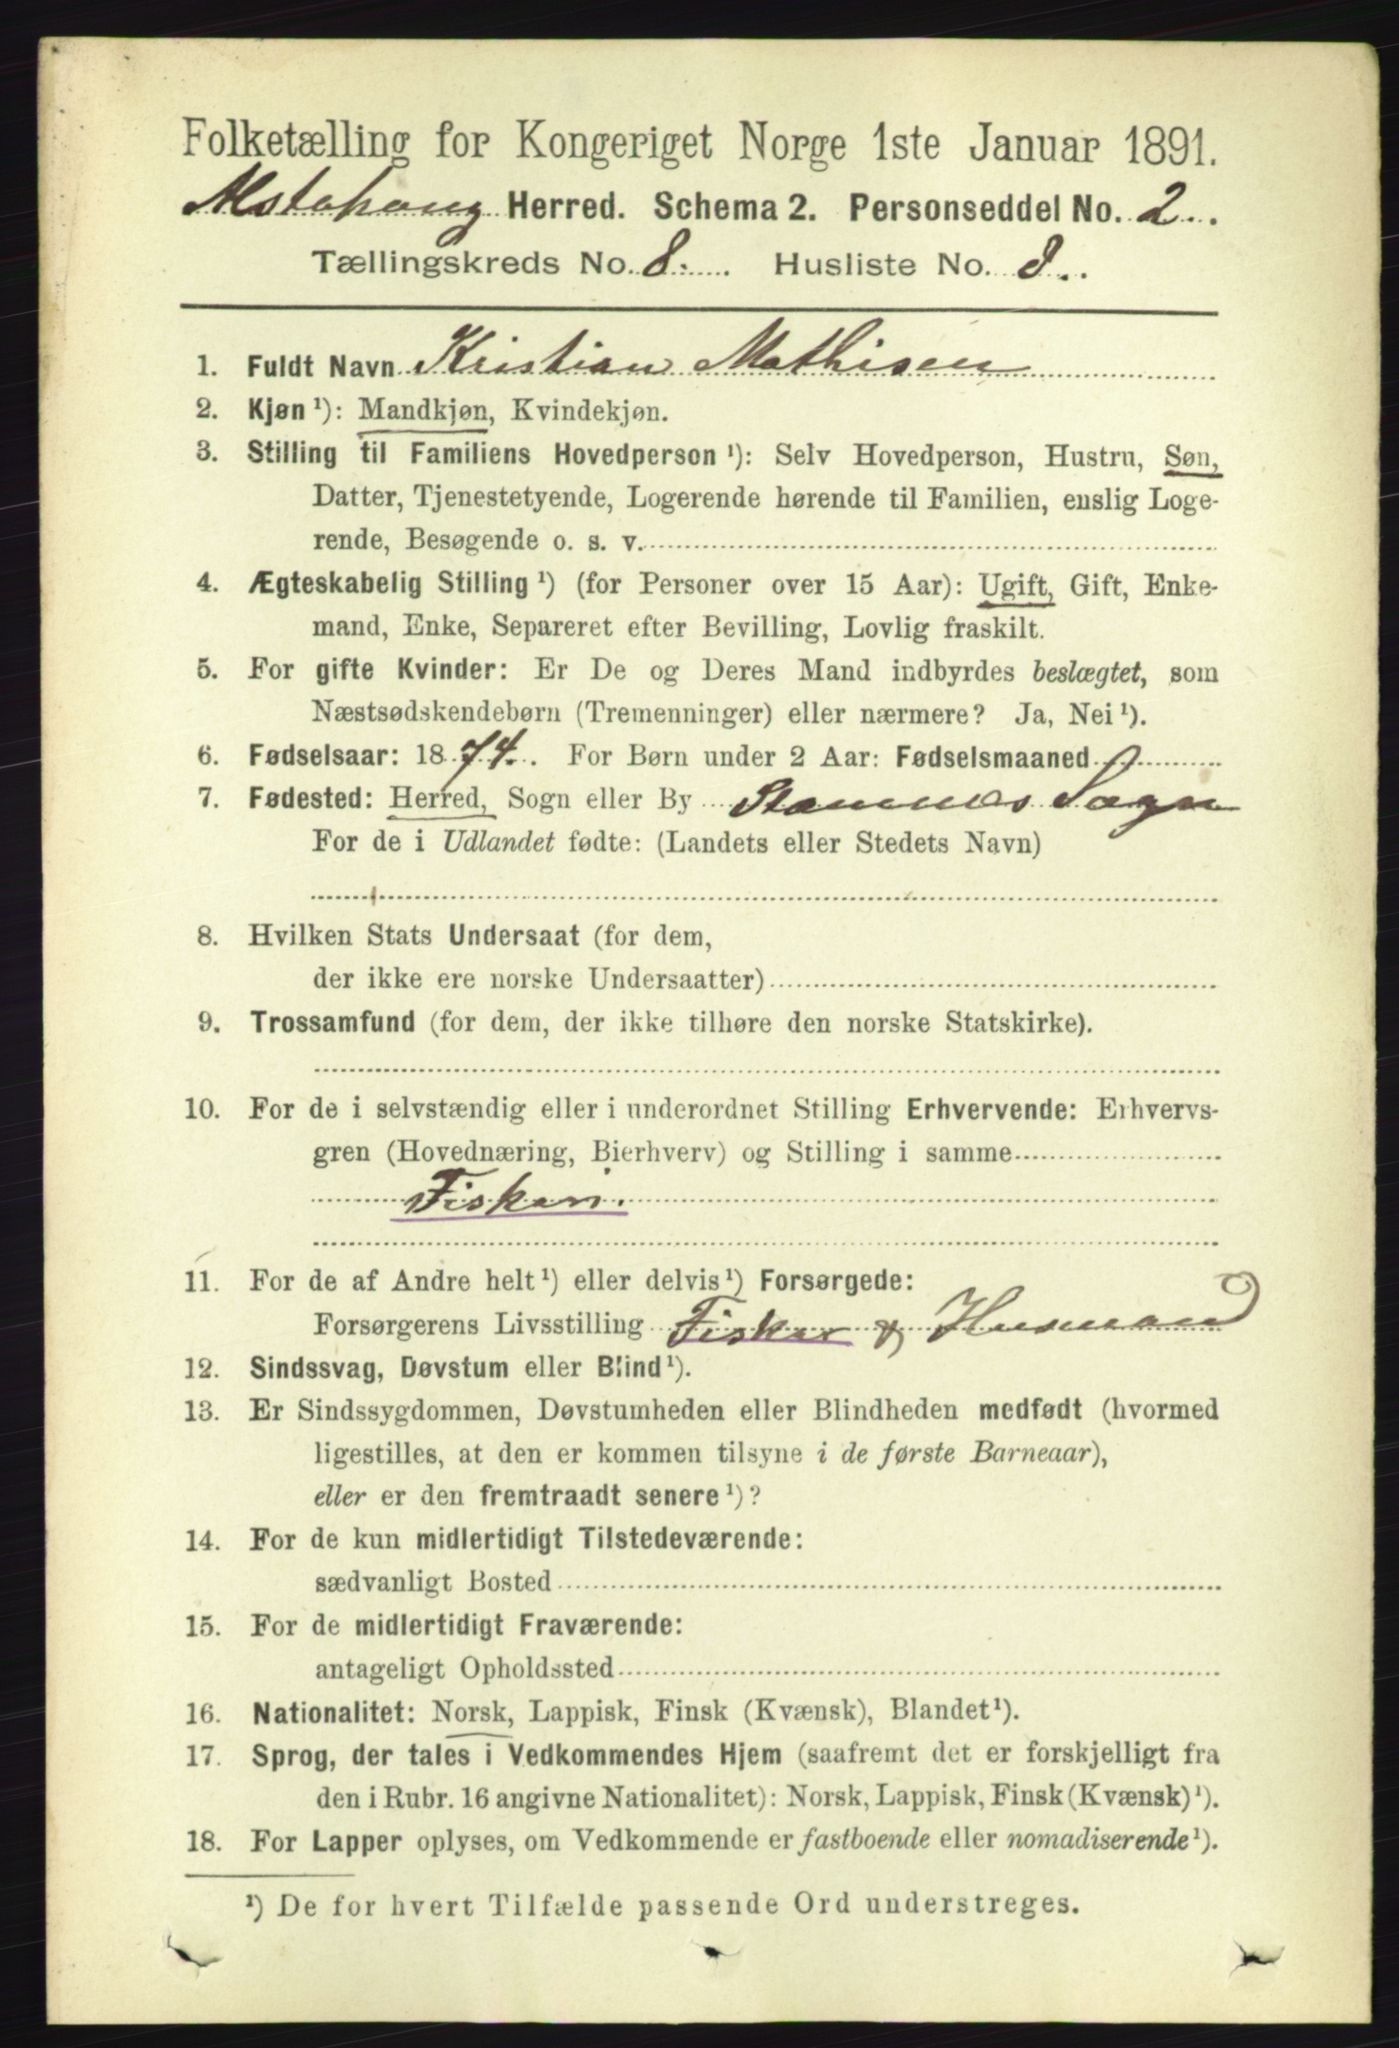 Folketælling for Kongeriget Norge 1ste Januar 1891.
Alstahaug Herred. Schema 2. Personseddel No. 2.
Tællingskreds No. 8. Husliste No. 8.
1. Fuldt Navn Kristian Mathisen
2. Kjøn ¹): Mandkjøn, Kvindekjøn.
3. Stilling til Familiens Hovedperson ¹): Selv Hovedperson, Hustru, Søn,
Datter, Tjenestetyende, Logerende hørende til Familien, enslig Loge-
rende, Besøgende o. s. v.
4. Ægteskabelig Stilling ¹) (for Personer over 15 Aar): Ugift, Gift, Enke-
mand, Enke, Separeret efter Bevilling, Lovlig fraskilt.
5. For gifte Kvinder: Er De og Deres Mand indbyrdes beslægtet, som
Næstsødskendebørn (Tremenninger) eller nærmere? Ja, Nei ¹).
6. Fødselsaar: 1874. For Børn under 2 Aar: Fødselsmaaned
7. Fødested: Herred, Sogn eller By Stamnes Sogn
For de i Udlandet fødte: (Landets eller Stedets Navn)
8. Hvilken Stats Undersaat (for dem,
der ikke ere norske Undersaatter)
9. Trossamfund (for dem, der ikke tilhøre den norske Statskirke).
10. For de i selvstændig eller i underordnet Stilling Erhvervende: Erhvervs-
gren (Hovednæring, Bierhverv) og Stilling i samme
Fiskeri.
11. For de af Andre helt ¹) eller delvis ¹) Forsørgede:
Forsørgerens Livsstilling Fisker & Husmand
12. Sindssvag, Døvstum eller Blind ¹).
13. Er Sindssygdommen, Døvstumheden eller Blindheden medfødt (hvormed
ligestilles, at den er kommen tilsyne i de første Barneaar),
eller er den fremtraadt senere ¹)?
14. For de kun midlertidigt Tilstedeværende:
sædvanligt Bosted
15. For de midlertidigt Fraværende:
antageligt Opholdssted
16. Nationalitet: Norsk, Lappisk, Finsk (Kvænsk), Blandet ¹).
17. Sprog, der tales i Vedkommendes Hjem (saafremt det er forskjelligt fra
den i Rubr. 16 angivne Nationalitet): Norsk, Lappisk, Finsk (Kvænsk) ¹).
18. For Lapper oplyses, om Vedkommende er fastboende eller nomadiserende ¹).
¹) De for hvert Tilfælde passende Ord understreges.